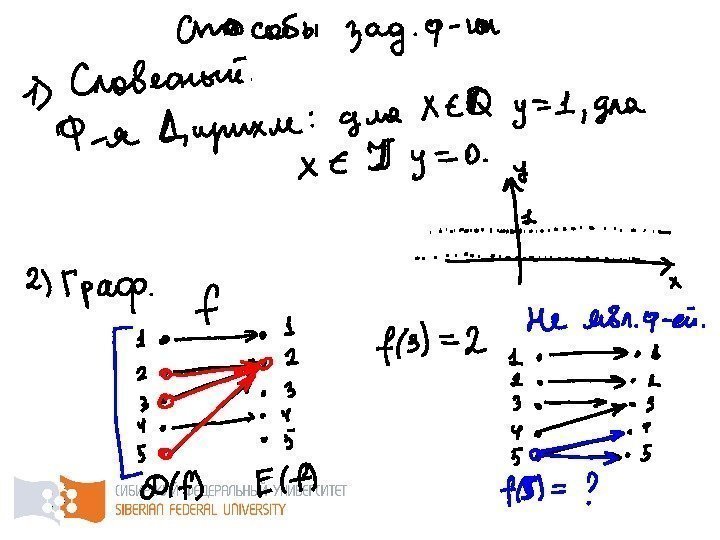 Способы зад. ф-ии
1) Словесный.
Ф-я Дирихле: для x∈Q y=1, для
x∈I y=0.
y
1
x
2) Граф.
f
1 1
2 2
3 3
4 4
5 5
D(f) E(f)
f(3)=2
Не явл. ф-ей.
1 1
2 2
3 3
4 4
5 5
f(5)= ?
СИБИРСКИЙ ФЕДЕРАЛЬНЫЙ УНИВЕРСИТЕТ
SIBERIAN FEDERAL UNIVERSITY